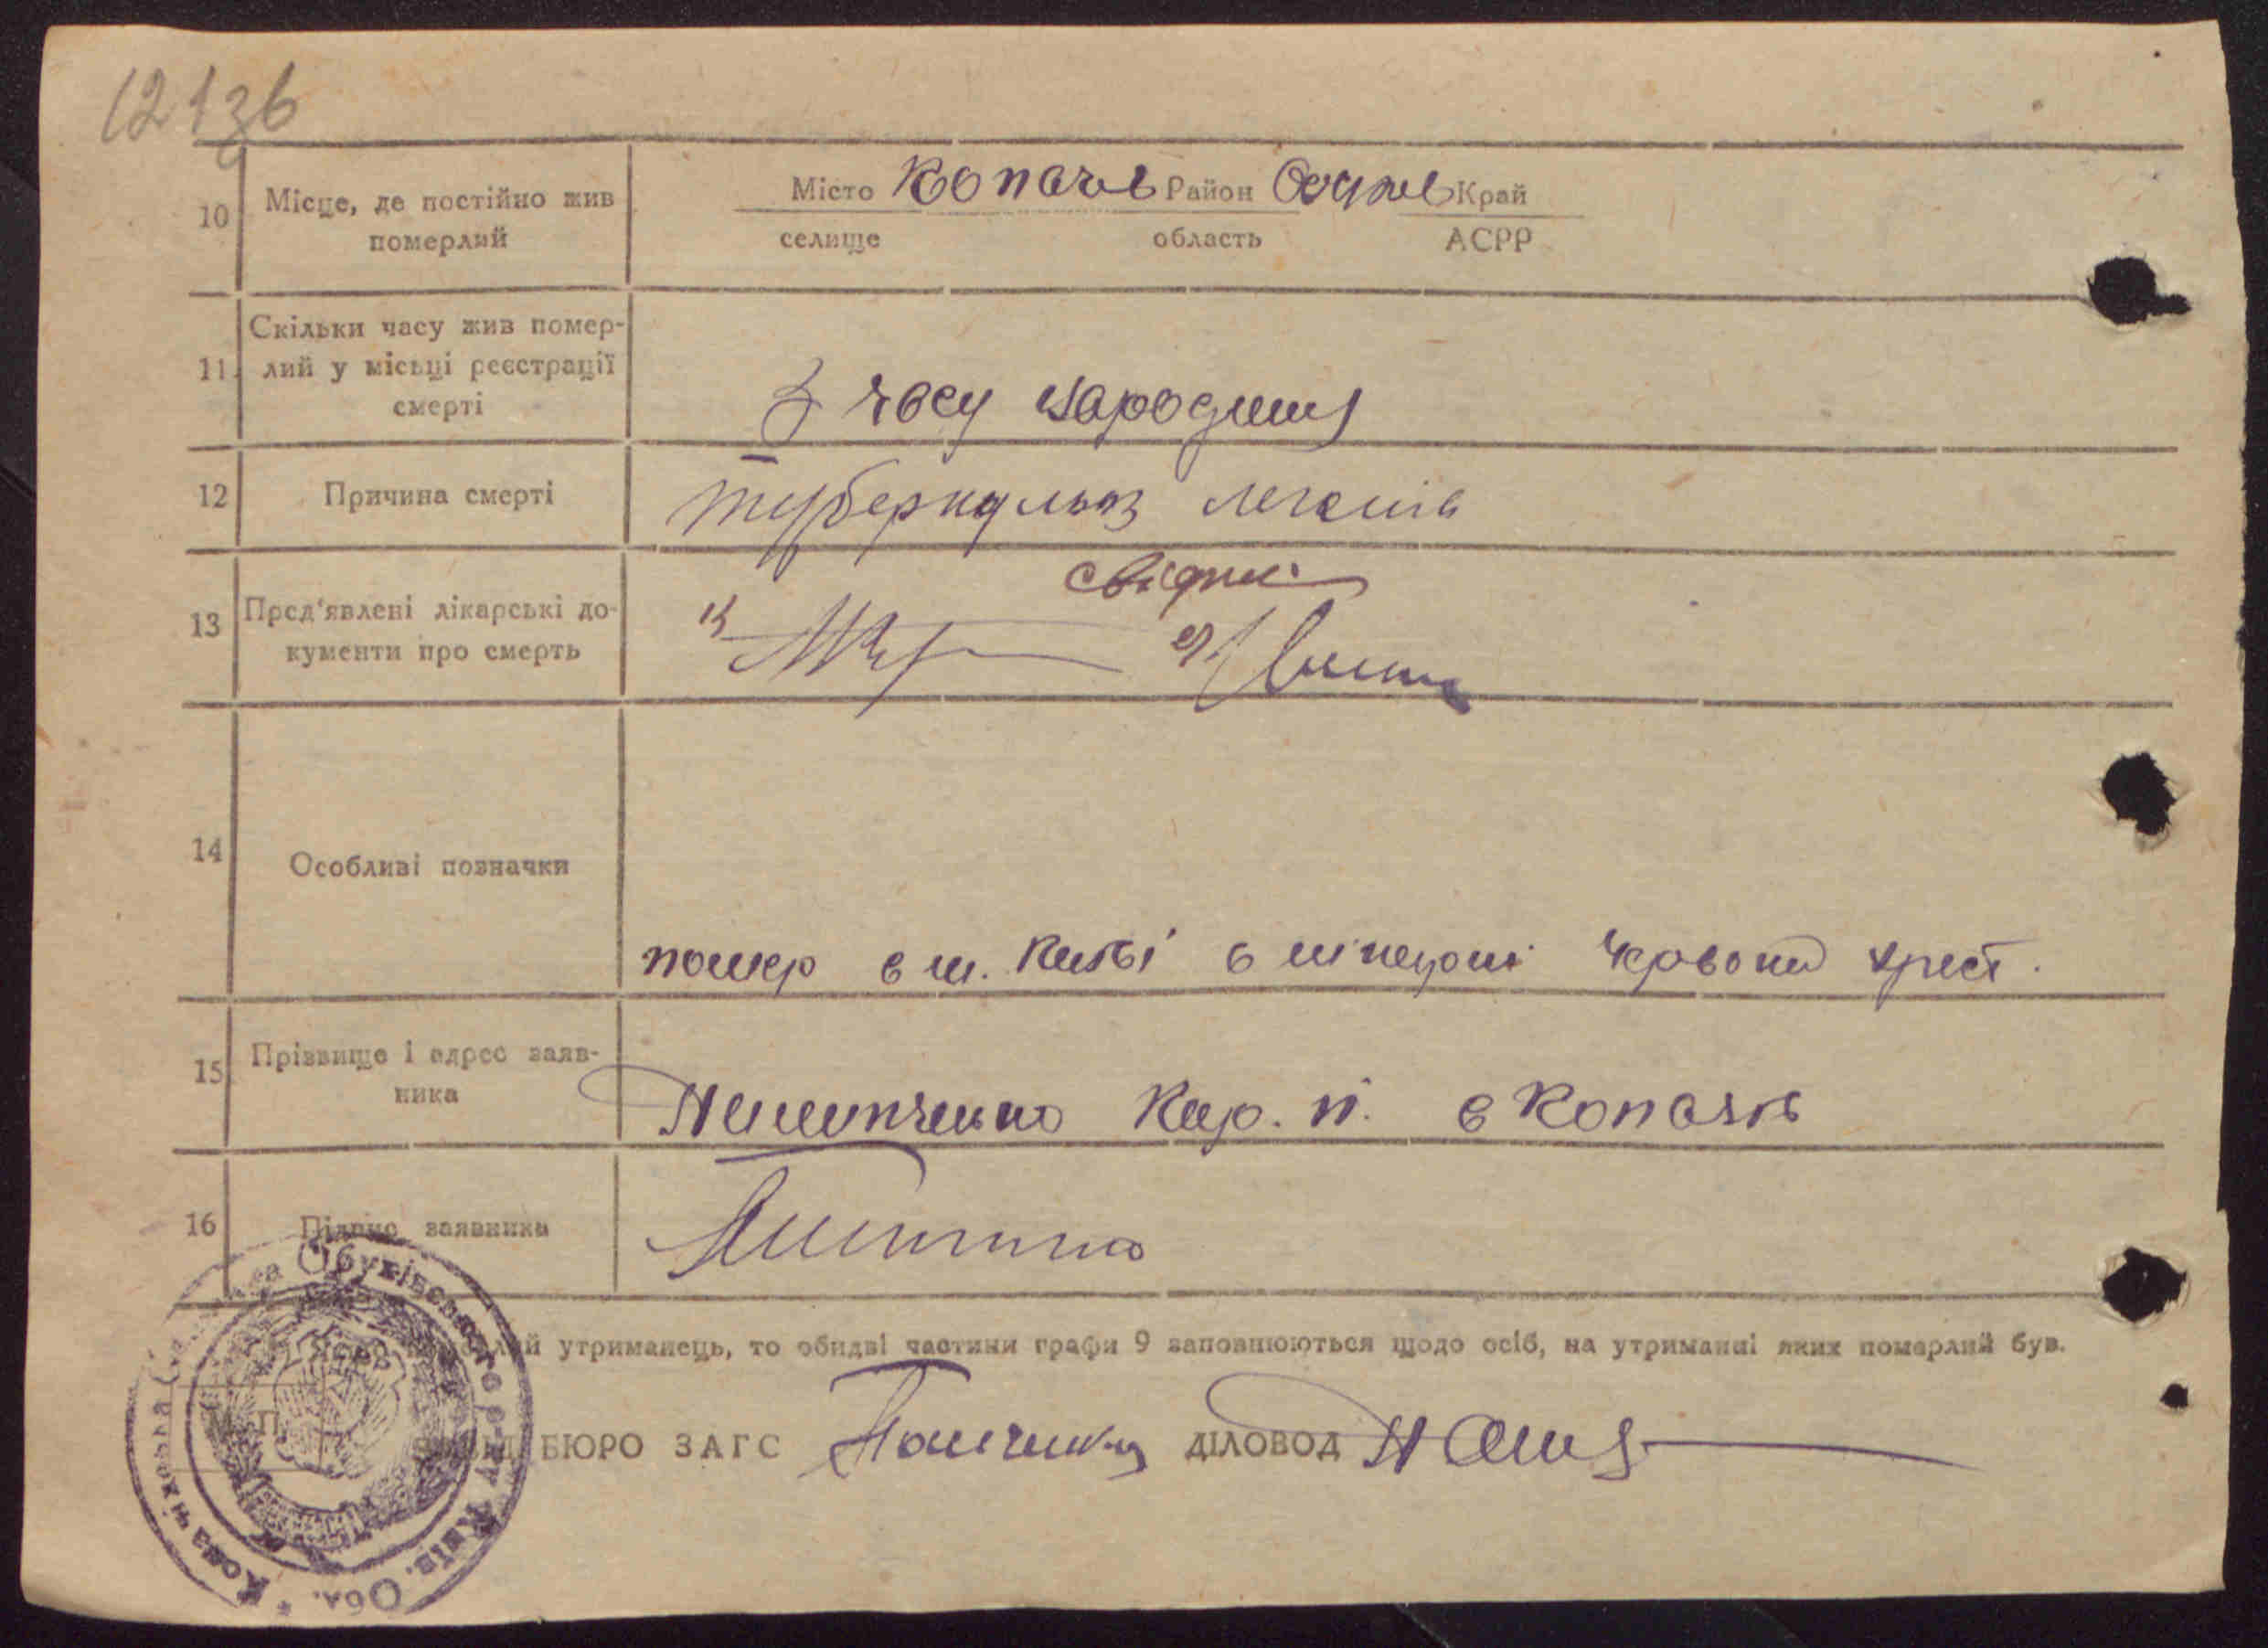 12136
10 Місце, де постійно жив померлий
Місто Копачів Район Обухів Край
селище область АСРР
11. Скільки часу жив помер-
лий у місьці реєстрації
смерті
З часу народжин
12 Причина смерті
туберкульоз легенів
13 Пред'явлені лікарські до-
кументи про смерть
свідки:
1)
2)
14 Особливі позначки
помер в м. Київі в лікарні Червоний хрест.
15 Прізвище і адрес заяв-
ника
Кир. П. с Копачів
16 Підпис заявника
утриманець, то обидві частини графи 9 заповнюються щодо осіб, на утриманні яких померлий був.
М. П.
БЮРО ЗАГС ДІЛОВОД
Обухівського р-ну Київ. Обл. *